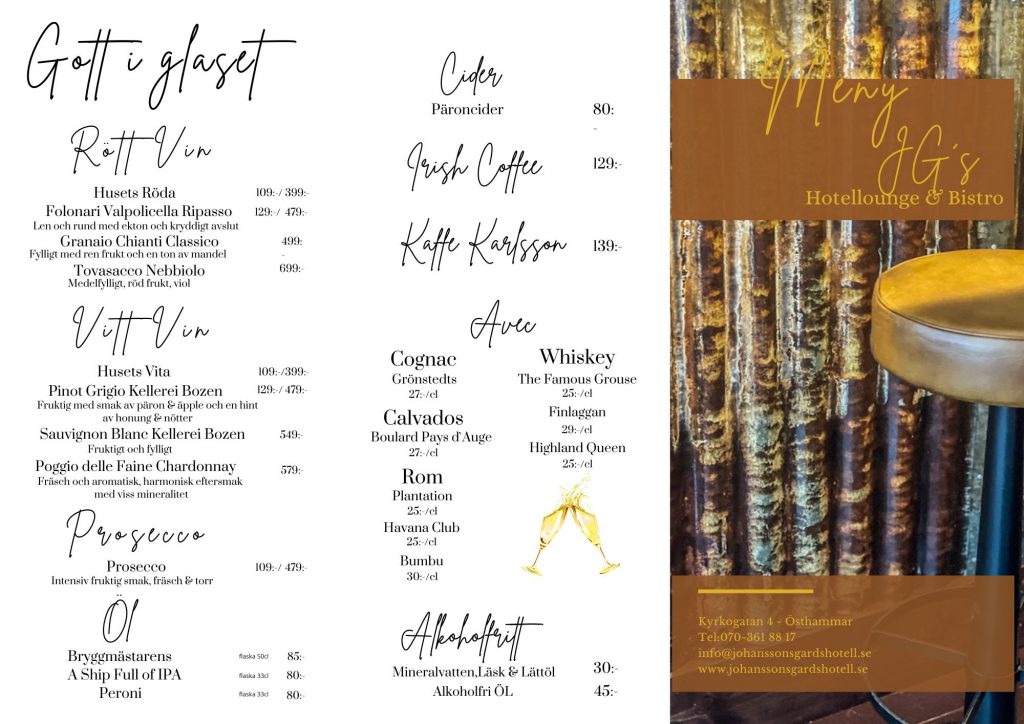 Gott i glaset
Rött Vin
Husets Röda 109:-/ 399:-
Folonari Valpolicella Ripasso 129:-/ 479:-
Len och rund med ekton och kryddigt avslut
Granaio Chianti Classico 499:
-
Fylligt med ren frukt och en ton av mandel
Tovasacco Nebbiolo 699:-
Medelfylligt, röd frukt, viol
Vitt Vin
Husets Vita 109:-/399:-
Pinot Grigio Kellerei Bozen 129:-/ 479:-
Fruktig med smak av päron & äpple och en hint
av honung & nötter
Sauvignon Blanc Kellerei Bozen 549:-
Fruktigt och fylligt
Poggio delle Faine Chardonnay 579:-
Fräsch och aromatisk, harmonisk eftersmak
med viss mineralitet
Prosecco
Prosecco 109:-/ 479:-
Intensiv fruktig smak, fräsch & torr
Öl
Bryggmästarens flaska 50cl 85:-
A Ship Full of IPA flaska 33cl 80:-
Peroni flaska 33cl 80:-
Cider
Päroncider 80:
-
Irish Coffee 129:-
Kaffe Karlsson 139:-
Avec
Cognac
Grönstedts
27:-/cl
Calvados
Boulard Pays d'Auge
27:-/cl
Rom
Plantation
25:-/cl
Havana Club
25:-/cl
Bumbu
30:-/cl
Whiskey
The Famous Grouse
25:-/cl
Finlaggan
29:-/cl
Highland Queen
25:-/cl
Alkoholfritt
Mineralvatten,Läsk & Lättöl 30:-
Alkoholfri ÖL 45:-
Meny
JG's
Hotellounge & Bistro
Kyrkogatan 4 - Östhammar
Tel:070-361 88 17
info@johanssonsgardshotell.se
www.johanssonsgardshotell.se